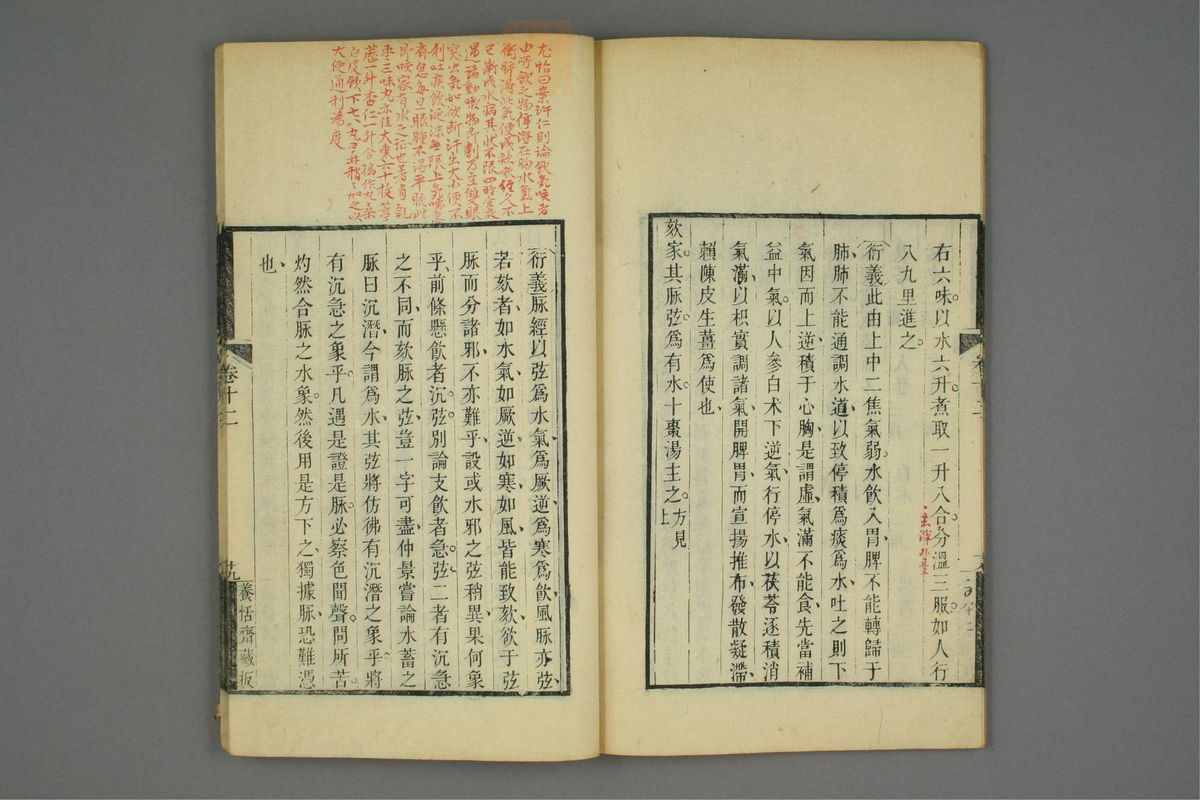 右六味以水六升煮取一升八合分溫三服如人行
八九里進之
衍義此由上中二焦氣弱水飲入胃脾不能轉歸于
肺肺不能通調水道以致停積爲痰爲水吐之則下
氣因而上逆積于心胸是謂虛氣滿不能食先當補
益中氣以人參白术下逆氣行停水以茯苓逐積消
氣滿以枳實調諸氣開脾胃而宣揚推布發散凝滯
賴陳皮生薑爲使也
欬家其脉弦爲有水十棗湯主之方見上
衍義脉經以弦爲水氣爲厥逆爲寒爲飲風脉亦弦
若欬者如水氣如厥逆如寒如風皆能致欬欲于弦
脉而分諸邪不亦難乎設或水邪之弦稍異果何象
乎前條懸飲者沉弦別論支飲者急弦二者有沉急
之不同而欬脉之弦豈一字可盡仲景嘗論水蓄之
脉曰沉潛今謂爲水其弦將仿彿有沉潛之象乎將
有沉急之象乎凡遇是證是脉必察色聞聲問所苦
灼然合脉之水象然後用是方下之獨據脉恐難憑
也
卷十二
廿九
養恬齋藏板
尤怡曰案許仁則論飲氣咳者
由所飲之物停滯在胸水氣上
衝肺得此氣便成欬嗽經久不
已漸成水病其狀不限四時晝夜
遇諸動嗽物即劇乃至雙眼
突出氣如欲斷汗出大小便不
利吐痰飲涎沫無限上氣喘急
肩息每旦眼腫不得平眠此
即咳家有水之証也著有乾
棗三味丸亦佳大棗六十枚葶
藶一升杏仁一升合搗作丸桑
白皮飲下七八丸日再稍稍加之以
大便通利為度